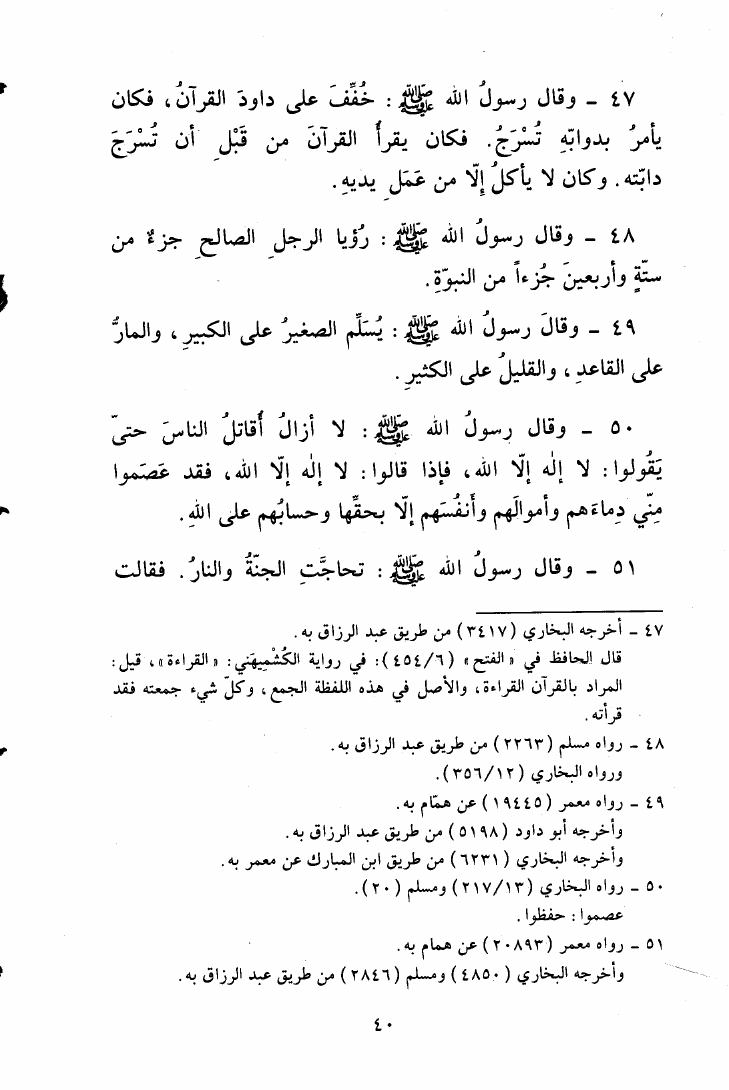 ٤٧ - وقال رسولُ الله ﷺ : خُفِّفَ على داودَ القرآنُ، فكان
يأمرُ بدوابّهِ تُسْرَجُ. فكان يقرأُ القرآنَ من قَبْلِ أن تُسْرَجَ
دابّته. وكان لا يأكلُ إلّا من عَمَلِ يديهِ.
٤٨ - وقال رسولُ الله ﷺ : رُؤيا الرجلِ الصالحِ جزءٌ من
ستّةٍ وأربعينَ جُزءاً من النبوّةِ.
٤٩ - وقالَ رسولُ الله ﷺ : يُسَلِّم الصغيرُ على الكبيرِ، والمارُّ
على القاعدِ، والقليلُ على الكثيرِ.
٥٠ - وقال رسولُ الله ﷺ : لا أزالُ أُقاتلُ الناسَ حتىّ
يَقُولوا: لا إلٰه إلّا الله، فإذا قالوا: لا إلٰه إلّا الله، فقد عَصَموا
مِنّي دِماءَهم وأموالَهم وأنفُسَهم إلّا بحقِّها وحسابُهم على اللهِ.
٥١ - وقال رسولُ الله ﷺ : تحاجَّتِ الجنّةُ والنارُ. فقالت
٤٧ - أخرجه البخاري (٣٤١٧) من طريق عبد الرزاق به.
قال الحافظ في «الفتح» (٤٥٤/٦): في رواية الكُشْمِيهَني: «القراءة»، قيل:
المراد بالقرآن القراءة، والأصل في هذه اللفظة الجمع، وكلّ شيء جمعته فقد
قرأته.
٤٨ - رواه مسلم (٢٢٦٣) من طريق عبد الرزاق به.
ورواه البخاري (٣٥٦/١٢).
٤٩ - رواه معمر (١٩٤٤٥) عن همّام به.
وأخرجه أبو داود (٥١٩٨) من طريق عبد الرزاق به.
وأخرجه البخاري (٦٢٣١) من طريق ابن المبارك عن معمر به.
٥٠ - رواه البخاري (٢١٧/١٣) ومسلم (٢٠).
عصموا: حفظوا.
٥١ - رواه معمر (٢٠٨٩٣) عن همام به.
وأخرجه البخاري (٤٨٥٠) ومسلم (٢٨٤٦) من طريق عبد الرزاق به.
٤٠